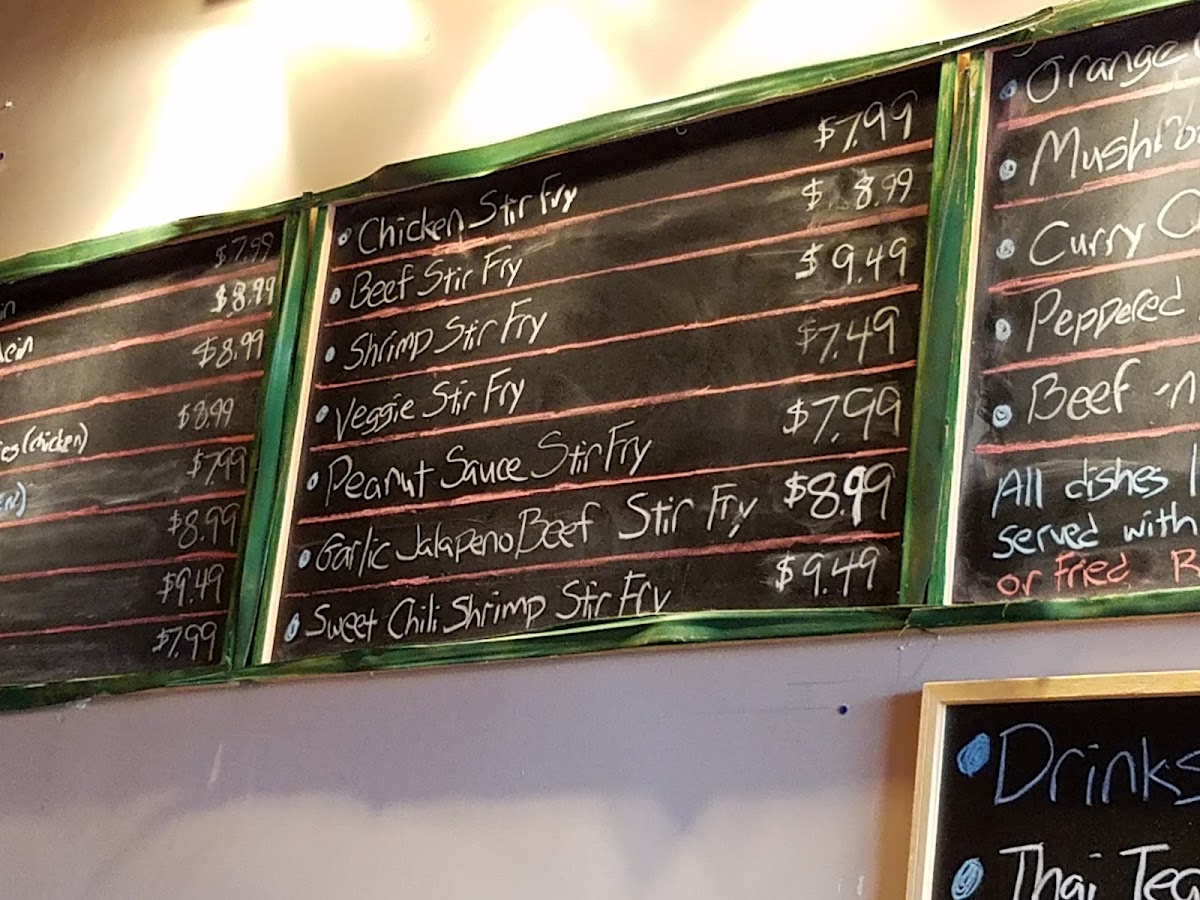 $7.99
$8.99
ein $8.99
$8.99
(chicken) $7.99
$8.99
$9.49
$7.99
Chicken Stir Fry $7.99
Beef Stir Fry $8.99
Shrimp Stir Fry $9.49
Veggie Stir Fry $7.49
Peanut Sauce Stir Fry $7.99
Garlic Jalapeno Beef Stir Fry $8.99
Sweet Chili Shrimp Stir Fry $9.49
Orange
Mushro
Curry C
Peppered
Beef -n
All dishes
served with
or Fried R
Drinks
Thai Tea